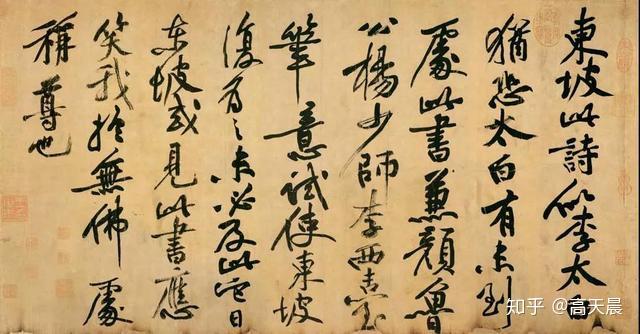 東坡此詩似李太白
猶恐太白有未到
處此書兼顏魯
公楊少師李西臺
筆意試使東坡
復為之未必及此它日
東坡或見此書應
笑我於無佛處
稱尊也
知乎 @高天晨